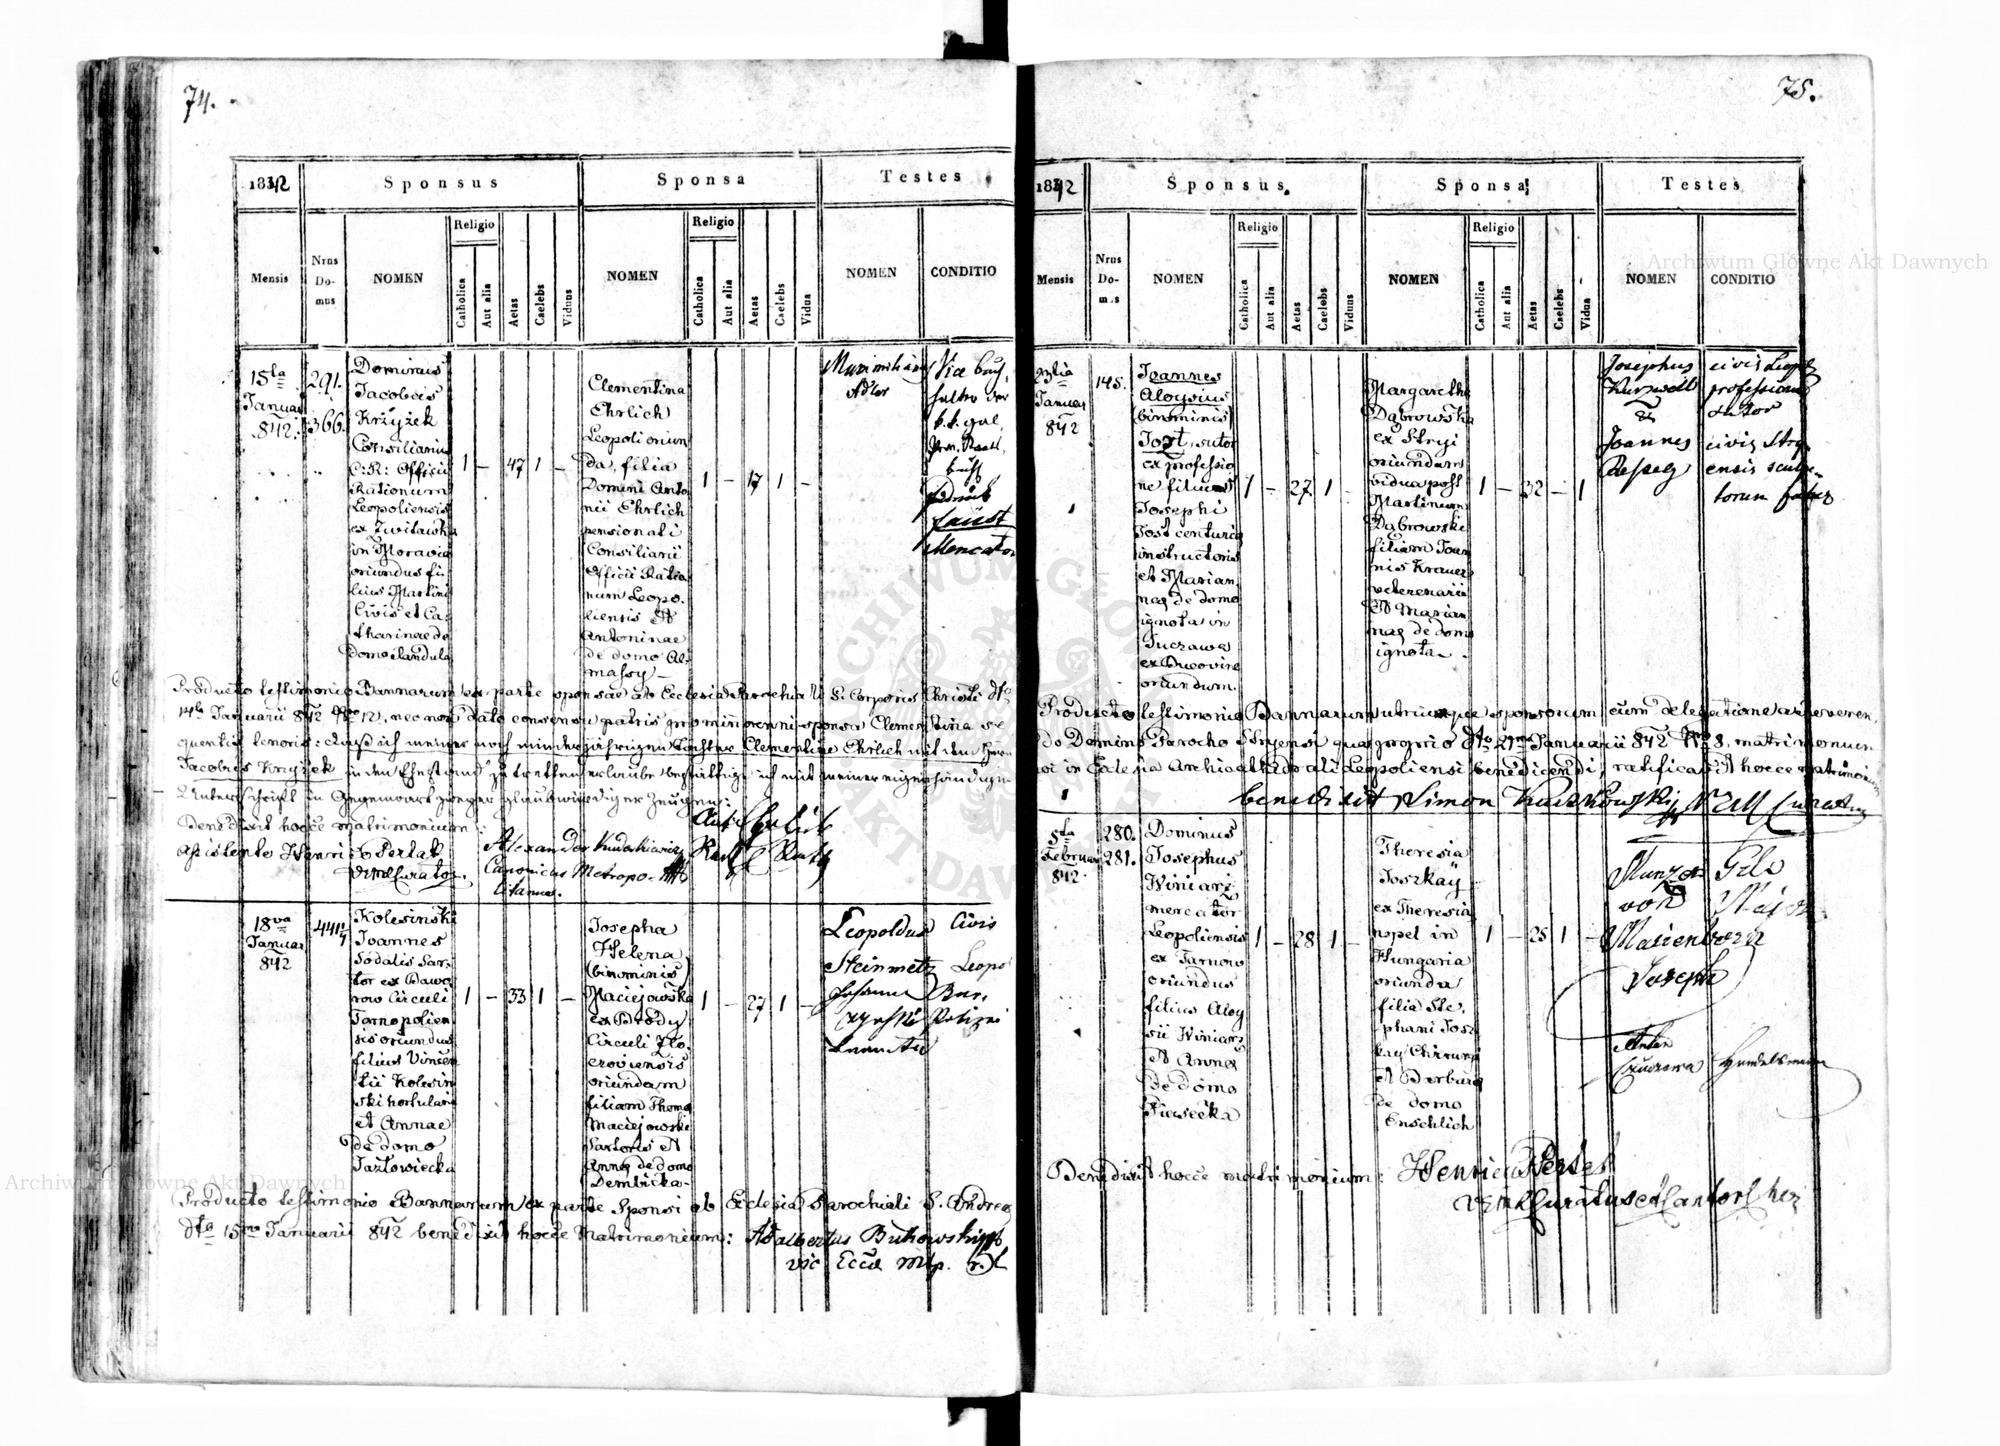 74.
1842
Sponsus
Sponsa
Testes
Mensis
Nrus Do-mus
NOMEN
Religio
Catholica
Aut alia
Aetas
Caelebs
Viduus
NOMEN
Religio
Catholica
Aut alia
Aetas
Caelebs
Vidua
NOMEN
CONDITIO
15ta
Januar
842.
291.
366.
Dominus
Jacobus
Krżyżek
Consiliarius
C: R: Officii
Rationum
Leopoliensis
ex Zwitawka
in Moravia
oriundus fi
lius Martini
Civis et Ca
tharinae de
domo Slandula
1 — 47 1 —
Clementina
Ehrlich
Leopoli oriun
da, filia
Domini Anto
nii Ehrlich
pensionati
Consiliarii
Officii Ratio
num Leopo.
liensis et
Antoninae
de domo Al
massy —
1 — 17 1 —
Maximilian
Adler
Vice buch
halter der
k.k. gal.
Prov. Staatl.
buchh
Faust
Mercator
Producto testimonio Bannorum ex parte sponsae ab Ecclesia Parochiali S. Corporis Christi dto
14ta Januarii 842 Nro 12, nec non dato consensu patris pro minorenni sponsa Clementina se
quentis tenoris: daß ich meiner noch minderjährigen Tochter Clementine Ehrlich mit dem Herrn
Jacobus Krzyżek in den Ehestand zu tretten erlaube bestättige ich mit meiner eigenhändigen
Unterschrift in Gegenwart zweyer glaubwürdiger Zeugen:
Benedixit hocce matrimonium:
Alexander Kudarkiewicz
Canonicus Metropo-
litanus.
assistente Henrico Pertak
Curator.
18va
Januar
842
441 1/4
Kolesinski
Joannes
Sodalis Sar-
tor ex Bawo
row Circuli
Tarnopolien
sis oriundus
filius Vincen
tii Kolesin
ski hortulani
et Annae
de domo
Jazłowiecka
1 — 33 1 —
Josepha
Helena
(binominis)
Maciejowska
ex Brody
Circuli Zło
czoviensis
oriundam
filiam Thoma
Maciejowski
Sartoris et
Anna de domo
Dembicka —
1 — 27 1 —
Leopoldus
Steinmetz
Johann
Civis
Leopo
Polizei
Producto testimonio Bannorum ex parte Sponsi ab Eclesia Parochiali S. Andrea
dto 15ta Januarii 842 benedixit hocce Matrimonium: Adalbertus Bukowski
vic Eccl Mtp. r. l
75.
1842
Sponsus
Sponsa
Testes
Mensis
Nrus Do-mus
NOMEN
Religio
Catholica
Aut alia
Aetas
Caelebs
Viduus
NOMEN
Religio
Catholica
Aut alia
Aetas
Caelebs
Vidua
NOMEN
CONDITIO
Januar
842
145.
Joannes
Aloysius
(binominis)
Jost, sutor
ex professio
ne filius
Josephi
Jost centuria
instructoris
et Marian
nae de domo
ignota in
Suczawa
ex Bucovina
oriundum.
1 — 27 1 —
Margaretha
Dąbrowska
ex Stryi
oriundam
vidua post
Martinum
Dąbrowski
filiam Joan
nis Krauer
veterenarii
et Marian
nae de domo
ignota —
1 — 32 — 1
Josephus
Kurzweil
&
Joannes
civis Leopl
professione
sutor
civis Stry
ensis sculp-
torum faber
Producto testimonio Bannorum utriusque sponsorum cum delegatione a reveren.
do Domino Parocho Stryensi qua proprio dto 29na Januarii 842 Nro 8, matrimonium
in Eclesia Archicathedrali Leopoliensi benedicendi, ratificavit hocce matrimonium
benedixit Simon Kulikowski
5ta
Februar
842.
280.
281.
Dominus
Josephus
Winiarz
mercator
Leopoliensis
ex Tarnow
oriundus
filius Aloy
sii Winiarz
et Anna
de domo
Piasecka
1 — 28 1 —
Theresia
Joszkay
ex Theresia
nopel in
Hungaria
oriunda
filia Ste.
phani Josz
kay Chirurgi
et Barbara
de domo
Enschlich
1 — 25 1 —
von
Marienborn
Joseph
Anton
Major
Handelsmann
Benedixit hocce matrimonium: Henric Pertak
Archiwum Główne Akt Dawnych
Archiwum Główne Akt Dawnych
ARCHIWUM GŁÓWNE AKT DAWNYCH